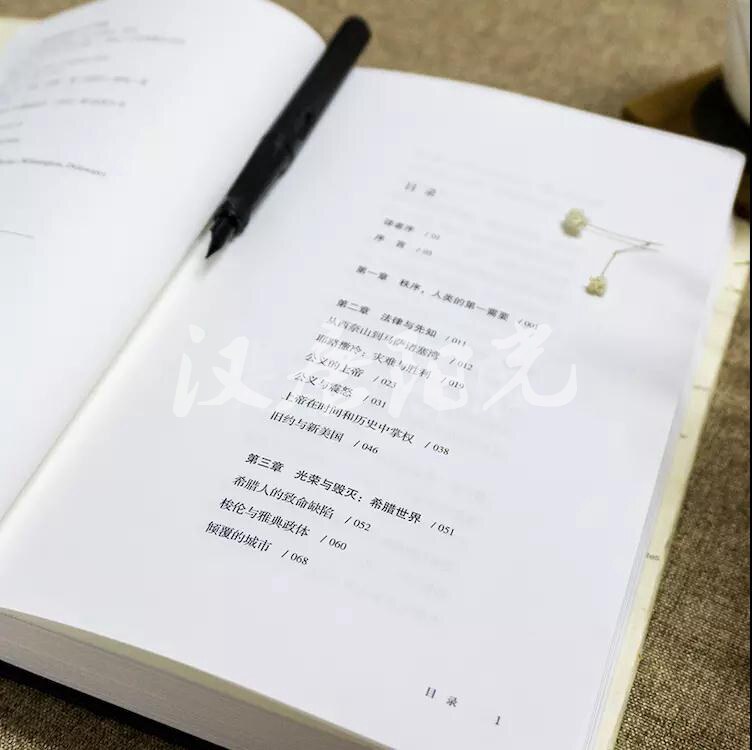 目 录
译者序 / 01
序 言 / 03
第一章 秩序，人类的第一需要 / 001
第二章 法律与先知 / 011
从西奈山到马萨诸塞湾 / 012
耶路撒冷：灾难与胜利 / 019
公义的上帝 / 025
公义与震怒 / 031
上帝在时间和历史中掌权 / 038
旧约与新美国 / 046
第三章 光荣与毁灭：希腊世界 / 051
希腊人的致命缺陷 / 052
梭伦与雅典政体 / 060
倾覆的城市 / 068
目 录 1